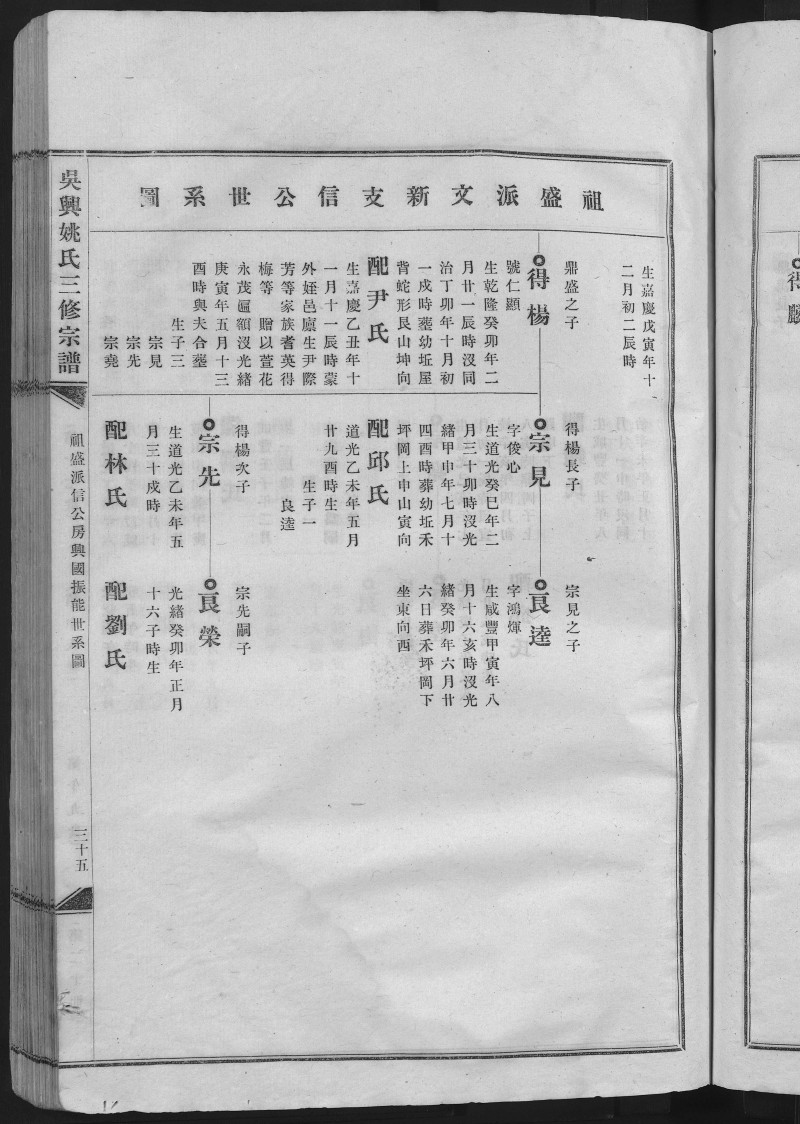 祖盛派文新支信公世系圖
生嘉慶戊寅年十
二月初二辰時
鼎盛之子
得楊
號仁顯
生乾隆癸卯年二
月廿一辰時沒同
治丁卯年十月初
一戍時塟幼坵屋
背蛇形艮山坤向
配尹氏
生嘉慶乙丑年十
一月十一辰時蒙
外姪邑廪生尹際
芳等家族耆英得
梅等 贈以萱花
永茂匾額沒光緒
庚寅年五月十三
酉時與夫合塟
生子三
宗見
宗先
宗堯
得楊長子
宗見
字俊心
生道光癸巳年二
月三十卯時沒光
緒甲申年七月十
四酉時葬幼坵禾
坪岡上申山寅向
配邱氏
道光乙未年五月
廿九酉時生
生子一
良逵
得楊次子
宗先
生道光乙未年五
月三十戍時
配林氏
宗見之子
良逵
字鴻煇
生咸豐甲寅年八
月十六亥時沒光
緒癸卯年六月廿
六日葬禾坪岡下
坐東向西
宗先嗣子
良榮
光緒癸卯年正月
十六子時生
配劉氏
吳興姚氏三修宗譜
祖盛派信公房興國振能世系圖
三十五
得麟